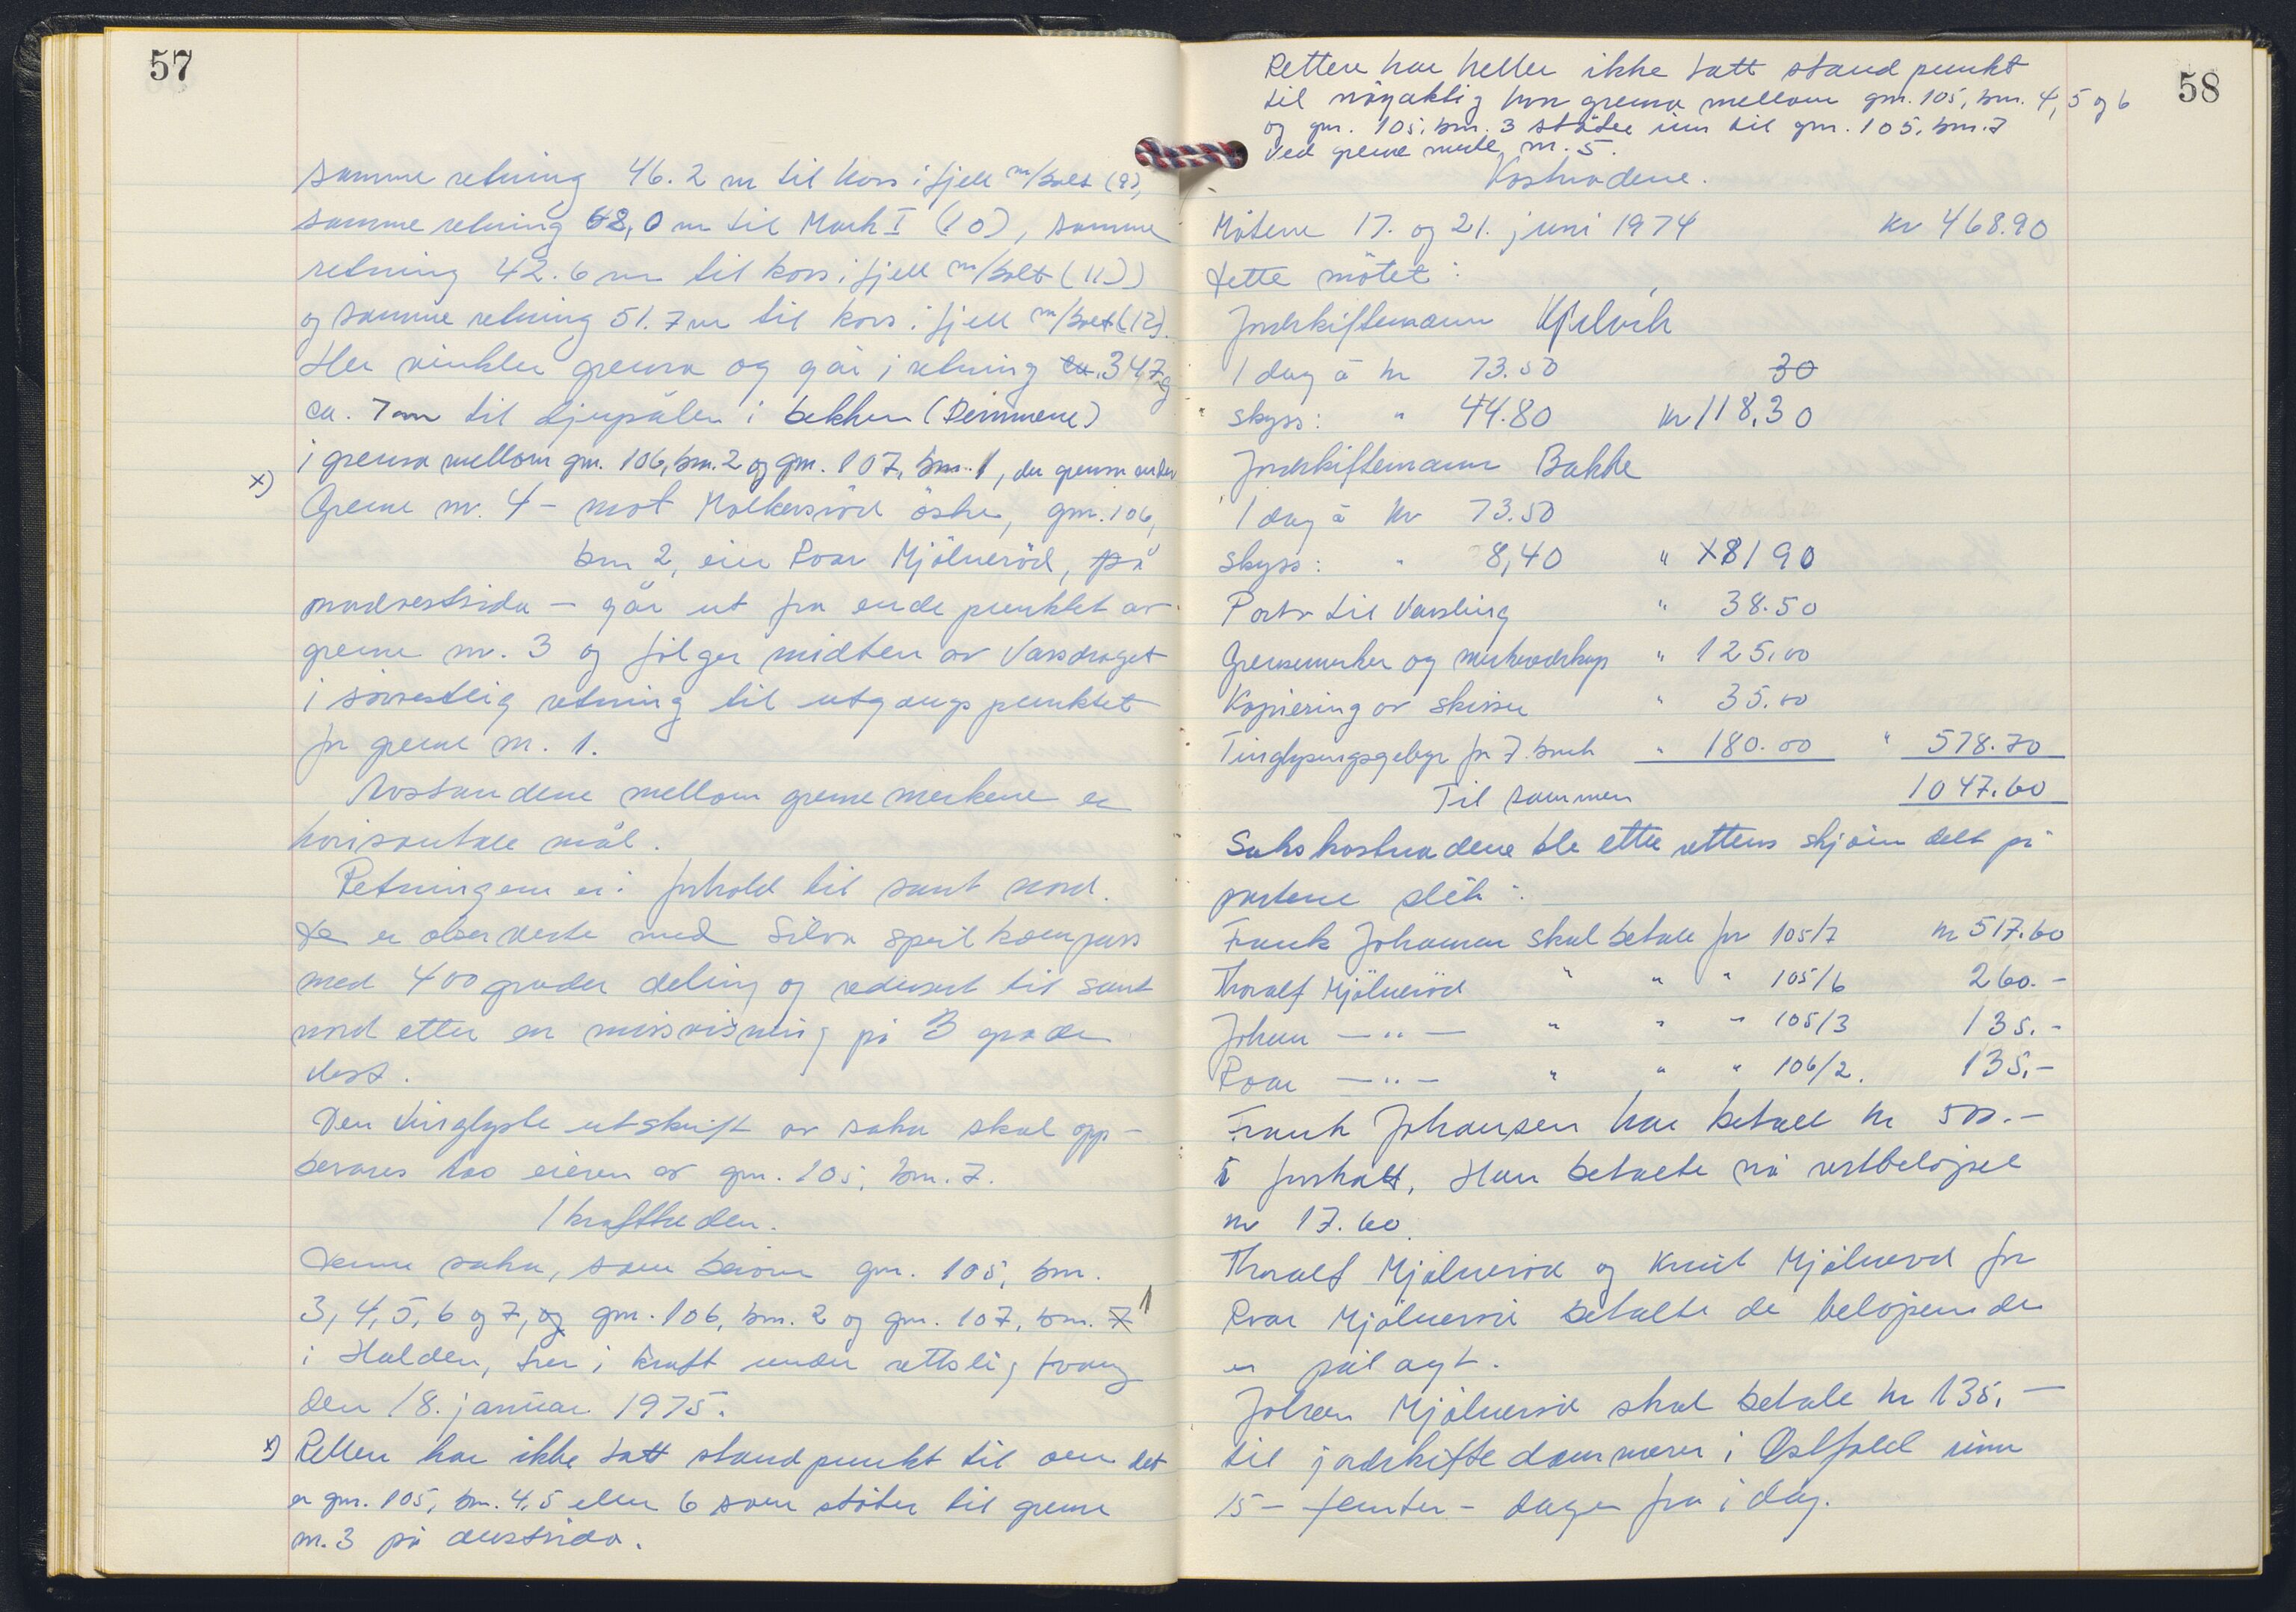 57
samme retning 46.2 m til kors i fjell m/bolt (9),
samme retning 68,0 m til Mark I (10), samme
retning 42.6 m til kors i fjell m/bolt (11)
og samme retning 51.7 m til kors i fjell m/bolt (12).
Her vinkler grensa og går i retning ca. 347 g
ca. 7 m til djupålen i bekken (Demmene)
i grensa mellom gnr. 106, bnr. 2 og gnr. 107, bnr. 1, der grensa ender
x) Grense nr. 4 - mot Mølkersröd östre, gnr. 106,
bnr 2, eier Roar Mjölneröd, på
nordvestsida - går ut fra endepunktet av
grense nr. 3 og følger midten av Vassdraget
i sørvestlig retning til utgangspunktet
for grense nr. 1.
Avstandene mellom grensemerkene er
horisontale mål.
Retningene er i forhold til sant nord.
De er observerte med Silva speilkompass
med 400 grader deling og redusert til sant
nord etter en missvisning på 3 grader
vest.
Den tinglyste utskrift av saka skal opp-
bevares hos eieren av gnr. 105, bnr. 7.
Ikrafttreden.
Denne saka, som berører gnr. 105, bnr.
3, 4, 5, 6 og 7, og gnr. 106, bnr. 2 og gnr. 107, bnr. 7 1
i Halden, trer i kraft under rettslig tvang
den 18. januar 1975.
x) Retten har ikke tatt standpunkt til om det
er gnr. 105, bnr. 4, 5 eller 6 som støter til grense
nr. 3 på austsida.
58
Retten har heller ikke tatt standpunkt
til nøyaktig hvor grensa mellom gnr. 105, bnr. 4, 5 og 6
og gnr. 105, bnr. 3 støter inn til gnr. 105, bnr. 7
ved grensemerke nr. 5.
Kostnadene.
Møtene 17. og 21. juni 1974 kr 468.90
Dette møtet:
Jordskiftemann Kjelvik
1 dag á kr 73.50 30
skyss: " 44.80 kr 118,30
Jordskiftemann Bakke
1 dag á kr 73.50
skyss: " 8,40 " 81 90
Porto til Varsling " 38.50
Grensemerker og merkeredskap " 125,00
Kopiering av skisse " 35.00
Tinglysingsgebyr for 7 bruk " 180.00 " 578.70
Til sammen 1047.60
Sakskostnadene ble etter rettens skjønn delt på
partene slik:
Frank Johansen skal betale for 105/7 kr 517.60
Thoralf Mjölneröd " " " 105/6 260.-
Johan — " — " " " 105/3 135.-
Roar — " — " " " 106/2. 135,-
Frank Johansen har betalt kr 500.-
i forskott. Han betalte nå restbeløpet
kr 17.60.
Thoralf Mjölneröd og Knut Mjölneröd for
Roar Mjölneröd betalte de beløpene de
er pålagt.
Johan Mjölneröd skal betale kr 135,-
til jordskiftedommeren i Østfold innen
15 - femten - dager fra i dag.